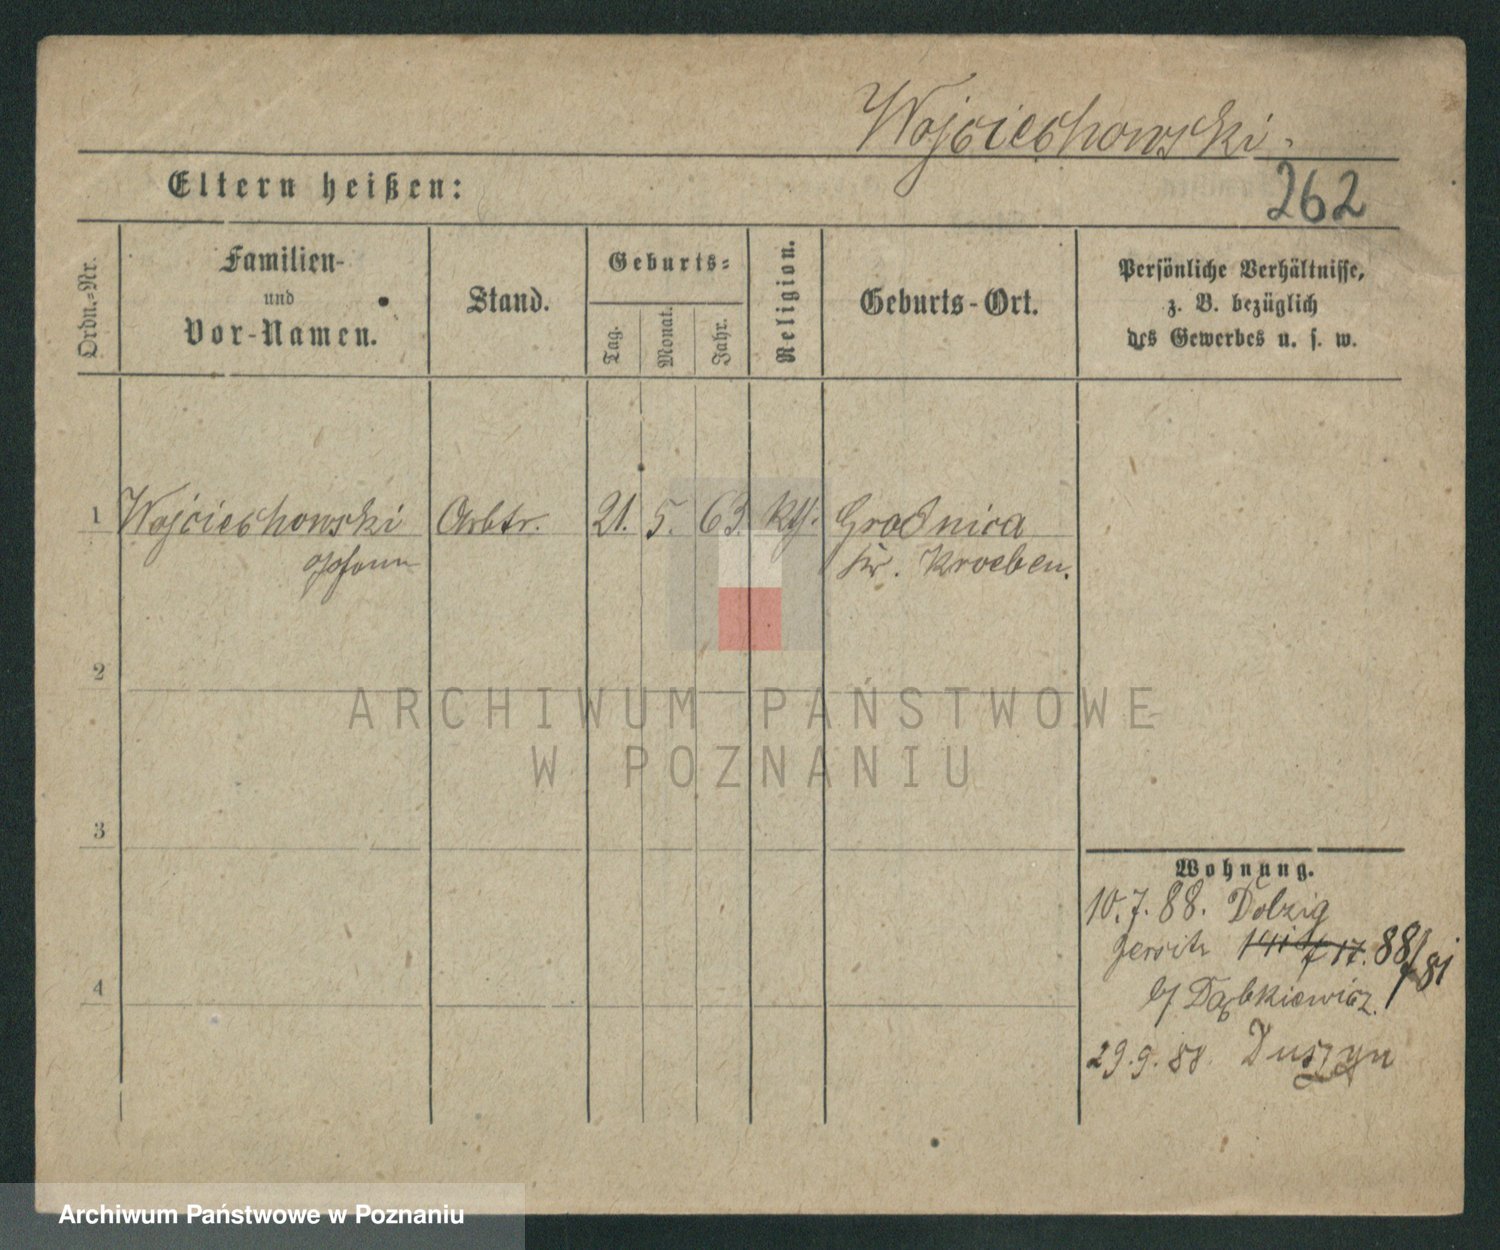 Wojciechowski.
Eltern heißen:
262
Ordn.-Nr.
Familien-
und
Vor-Namen.
Stand.
Geburts-
Tag.
Monat.
Jahr.
Religion.
Geburts-Ort.
Persönliche Verhältnisse,
z. B. bezüglich
des Gewerbes u. s. w.
1 Wojciechowski Arbtr. 21. 5. 63. kth. Grodnica
Johann Kr. Kroeben.
2
ARCHIWUM PAŃSTWOWE
W POZNANIU
3
Wohnung.
10.7.88. Dolzig
Jersitz 88/81
b/ Dąbkiewicz.
4
29.9.88. Duszyn
Archiwum Państwowe w Poznaniu